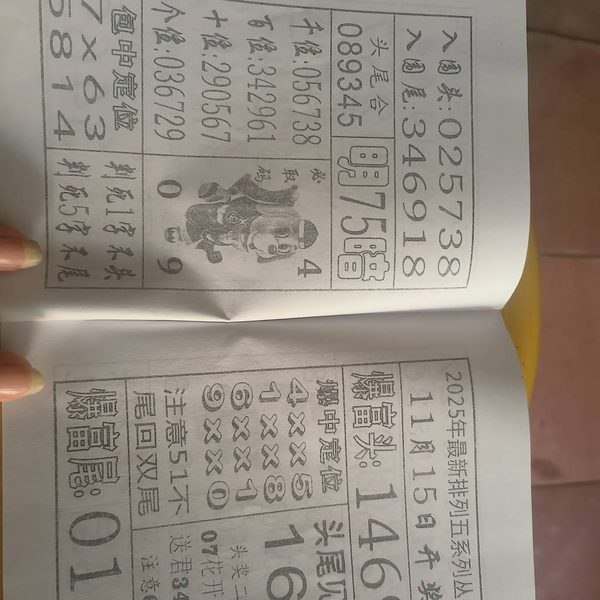 入围头:025738
入围尾:346918
头尾合
089345
明75暗
千位:056738
百位:342961
十位:290567
个位:036729
必取码
4
0
9
包中定位
7×63
5814
判死1字不头
判死5字不尾
2025年最新排列五系列丛
11月15日开奖
爆富头:146
爆中定位
4××5
1××8
6××1
9××0
注意51不
尾回双尾
爆富尾:01
头尾见
16
头奖二
07花开
送君34
注意